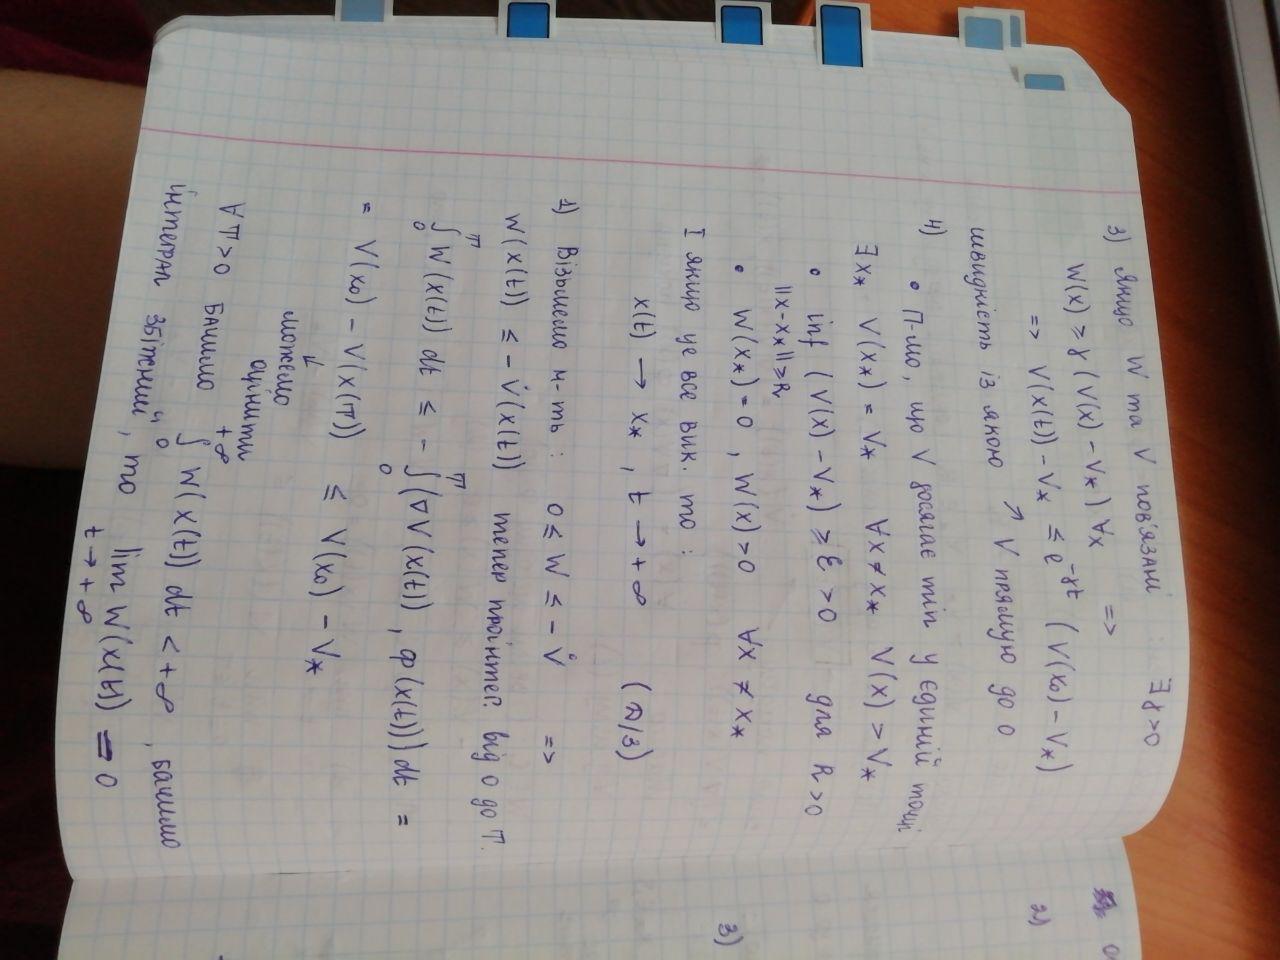 3) Якщо W та V пов'язані : ∃ γ>0
W(x) ≥ γ (V(x) – V*) ∀x =>
=> V(x(t)) – V* ≤ e^{-γt} (V(x₀) – V*)
швидкість із якою ↗ V прямую до 0
4)
• П-мо, що V досягає min у єдиній точці
∃x* V(x*) = V* ∀x ≠ x* V(x) > V*
• inf (V(x) – V*) ≥ ε > 0 для R>0
||x–x*||≥R
• W(x*) = 0 , W(x) > 0 ∀x ≠ x*
І якщо це все вик. то :
x(t) → x* , t → +∞ (Д/З)
1) Візьмемо н-ть : 0 ≤ W ≤ – V̇ =>
W(x(t)) ≤ – V̇(x(t)) тепер проінтег. від 0 до T.
∫₀ᵀ W(x(t)) dt ≤ – ∫₀ᵀ (∇V(x(t)) , Φ(x(t))) dt =
= V(x₀) – V(x(T)) ≤ V(x₀) – V*
↓
можемо
оцінити
∀T>0 бачимо ∫₀^{+∞} W(x(t)) dt < +∞ , бачимо
інтеграл збіжний, то lim W(x(t)) = 0
t → +∞
2)
3)